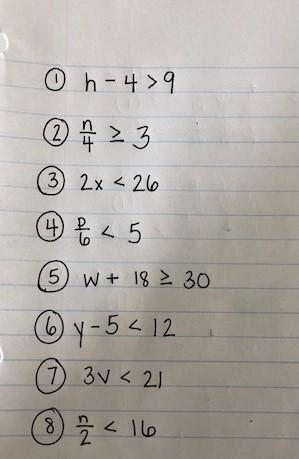 ① h - 4 > 9
② n/4 ≥ 3
③ 2x < 26
④ p/6 < 5
⑤ w + 18 ≥ 30
⑥ y - 5 < 12
⑦ 3v < 21
⑧ n/2 < 16